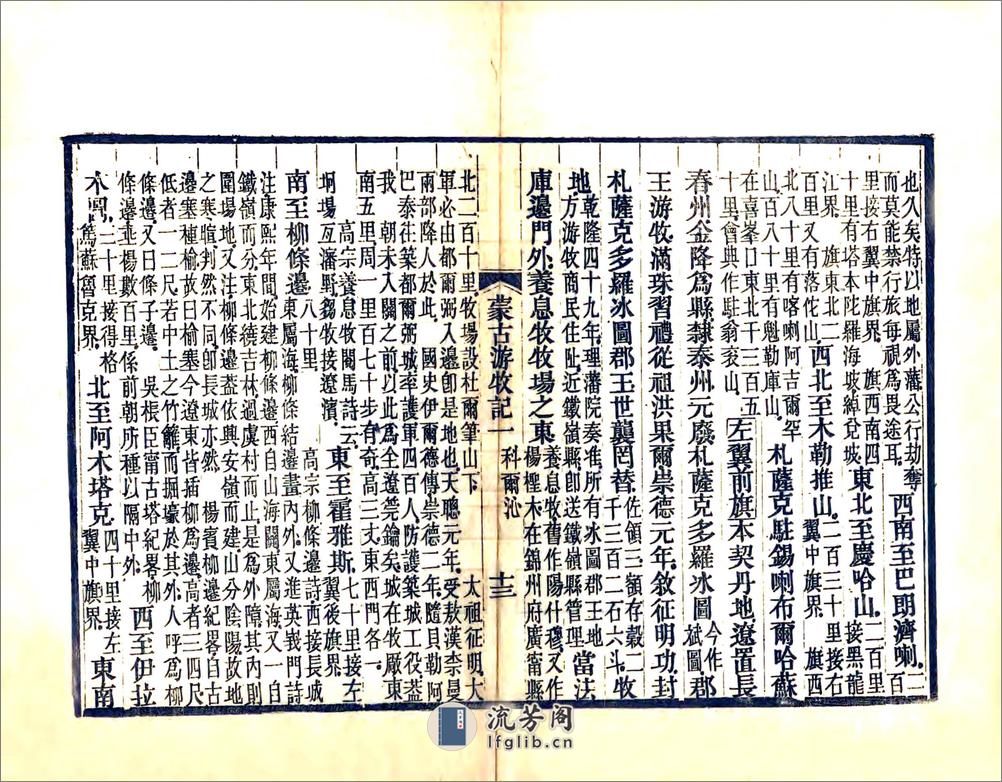 也久矣特以地屬外藩公行劫奪
而莫能禁行旅每視爲畏途耳
西南至巴朗濟喇
二
百
里接右翼中旗界 旗西南四
十里有塔本陀羅海坡綽兌城
東北至慶哈山
二百里
接黑龍
江界 旗東北二
百里又有落佗山
西北至木勒推山
二百三十里接右
翼中旗界 旗西
北八十里有喀喇阿吉爾罕
山一百八十里有魁勒庫山
札薩克駐錫喇布爾哈蘇
在喜峯口東北千三百五
十里會典作駐翁袞山
左翼前旗本契丹地遼置長
春州金降爲縣隸泰州元廢札薩克多羅冰圖
今作
斌圖
郡
王游牧滿珠習禮從祖洪果爾崇德元年敘征明功封
札薩克多羅冰圖郡王世襲罔替
佐領三額存穀二
千三百二石六斗
牧
地
乾隆四十九年理藩院奏准所有冰圖郡王地
方游牧商民住阯近鐵嶺縣即送鐵嶺縣管理
當法
庫邊門外養息牧牧場之東
養息牧舊作陽什穆又作
楊檉木在錦州府廣甯縣
蒙古游牧記一
科爾沁
十三
北二百十里牧場設杜爾筆山下 太祖征明大
軍必由都爾弼入邊即是地也天聰元年受敖漢柰曼
兩部降人於此 國史伊爾德傳崇德二年隨貝勒阿
巴泰往築都爾弼城率護軍四百人防護築城工役蓋
我 朝未入關之前以此爲全遼筦鑰矣城在牧廠東
南五里周一里百七十步有奇高三丈東西門各一
高宗養息牧閱馬詩云
坰場亙瀋野芻牧接遼濱
東至霍雅斯
七十里接左
翼後旗界
南至柳條邊
八十里 高宗柳條邊詩西接長城
東屬海柳條結邊畫內外又進英莪門詩
注康熙年間始建柳條邊西自山海關東屬海又一自
鐵嶺而分東北繞吉林過虞村而止是爲外障其內則
圍場地又注柳條邊蓋依興安嶺而建山分陰陽故地
之寒暄判然不同即長城亦然 楊賓柳邊紀畧自古
邊塞種榆故曰榆塞今遼東皆插柳爲邊高者三四尺
低者一二尺若中土之竹籬而掘壕於其外人呼爲柳
條邊又曰條子邊 吳桭臣甯古塔紀畧柳
條邊垂楊數百里係前朝所種以隔中外
西至伊拉
木圖
二十里接得格
爲蘇魯克界
北至阿木塔克
四十里接左
翼中旗界
東南
流芳阁
lfglib.cn